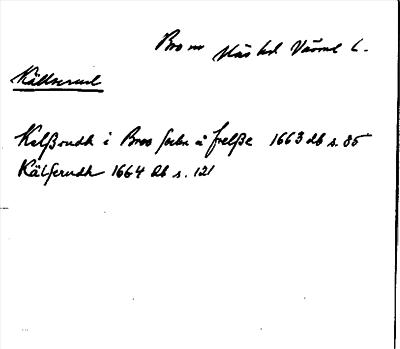 Bro sn Näs hd Värml l.
Källserud
Kelßrudh i Broo sockn å frelße 1663 db s. 85
Kälserudh 1664 db s. 121